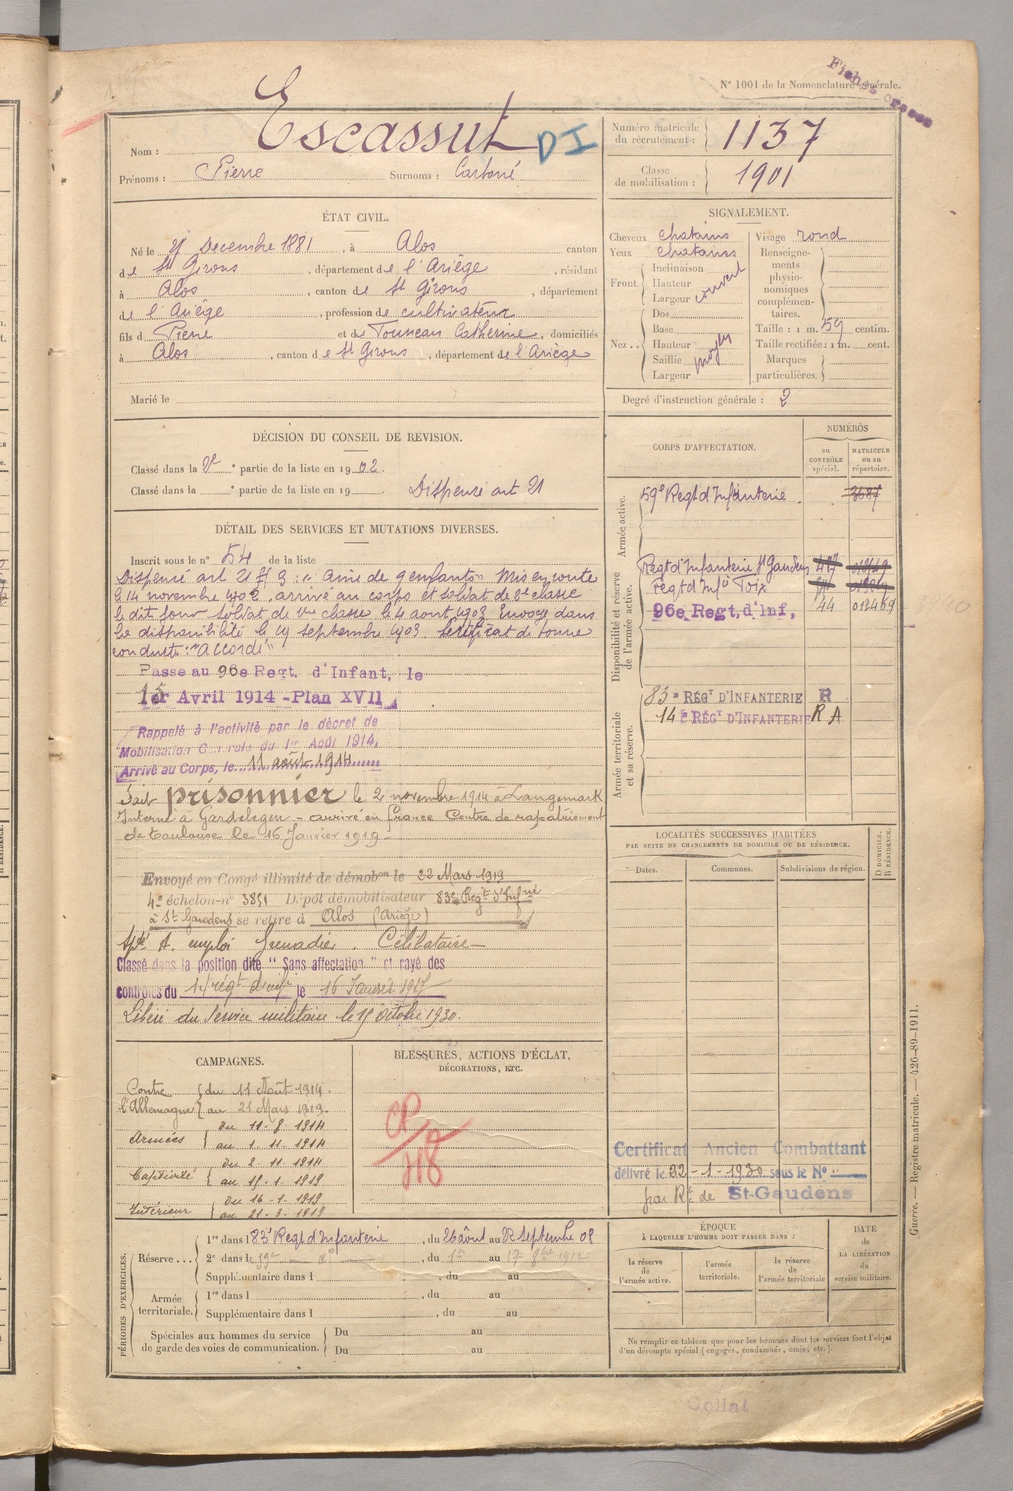 N° 1001 de la Nomenclature générale.
Nom : Escassut DI
Prénoms : Pierre Surnoms :
Numéro matricule du recrutement : 1137
Classe de mobilisation : 1901
ÉTAT CIVIL.
Né le Decembre 1881, à Alos canton
de St Girons, département de l'Ariège, résidant
à Alos, canton de St Girons, département
de l'Ariège, profession de cultivateur
fils de Pierre et de Touncau Catherine, domiciliés
à Alos, canton de St Girons, département de l'Ariège
Marié le
SIGNALEMENT.
Cheveux chatains
Yeux chatains
Front. Inclinaison
Hauteur
Largeur couvert
Nez. Dos
Base
Hauteur moyen
Saillie
Largeur
Visage rond
Renseignements physionomiques complémentaires.
Taille : 1 m. 59 centim.
Taille rectifiée : 1 m. cent.
Marques particulières.
Degré d'instruction générale : 2
DÉCISION DU CONSEIL DE REVISION.
Classé dans la partie de la liste en 1902.
Classé dans la partie de la liste en 19 Dispensé art 21
DÉTAIL DES SERVICES ET MUTATIONS DIVERSES.
Inscrit sous le n° 54 de la liste
Dispensé art 21 § 3 : "Ainé de 9 enfants" Mis en route
le 14 novembre 1902, arrivé au corps et soldat de 2e classe
le dit jour. Soldat de 1re classe le 4 aout 1903. Envoyé dans
la disponibilité le 19 septembre 1903. Certificat de bonne
conduite : "Accordé"
Passé au 96e Regt. d'Infant, le
1er Avril 1914 - Plan XVII
Rappelé à l'activité par le décret de
Mobilisation Générale du 1er Août 1914,
Arrivé au Corps, le 11 août 1914
Fait prisonnier le 2 novembre 1914 à Langemark
Interné à Gardelegen - arrivé en France Centre de rapatriement
de Toulouse le 16 Janvier 1919
Envoyé en Congé illimité de démobon le 22 Mars 1919
4e échelon n° 3851 Dépôt démobilisateur 83e Regt d'Infrie
à St Gaudens se retire à Alos (Ariège)
emploi Grenadier. Célibataire
Classé dans la position dite "Sans affectation" et rayé des
contrôles du régt d'inf le 16 Janvier
Libéré du Service militaire le 15 octobre 1930.
CORPS D'AFFECTATION.
NUMÉROS
AU CONTRÔLE spécial.
MATRICULE ou au répertoire.
Armée active.
59e Regt d'Infanterie 3687
Disponibilité et réserve de l'armée active.
Regt d'Infanterie St Gaudens
Regt d'Infie Foix
96e Regt, d'Inf, 44 013469
Armée territoriale et sa réserve.
83e RÉGt D'INFANTERIE R
14e RÉGt D'INFANTERIE R A
LOCALITÉS SUCCESSIVES HABITÉES
PAR SUITE DE CHANGEMENTS DE DOMICILE OU DE RÉSIDENCE.
Dates. Communes. Subdivisions de région. D DOMICILE. R RÉSIDENCE.
CAMPAGNES.
Contre l'Allemagne du 11 Août 1914
au 21 Mars 1919.
Armées du 11-8 1914
au 1-11-1914
Captivité du 2-11 1914
au 15-1. 1919
Intérieur du 16-1-1919
au 21-3-1919
BLESSURES, ACTIONS D'ÉCLAT,
DÉCORATIONS, ETC.
Certificat Ancien Combattant
délivré le 22-1-1930 sous le N°
par Rt de St-Gaudens
PÉRIODES D'EXERCICES.
Réserve... 1re dans l 83e Regt d'Infanterie, du 26 août au 22 Septembre 08
2e dans l 59e do, du 1er au 17 8bre 1912
Supplémentaire dans l, du au
Armée territoriale. 1re dans l, du au
Supplémentaire dans l, du au
Spéciales aux hommes du service
de garde des voies de communication.
Du au
Du au
ÉPOQUE
À LAQUELLE L'HOMME DOIT PASSER DANS :
la réserve de l'armée active.
l'armée territoriale.
la réserve de l'armée territoriale
DATE
de
LA LIBÉRATION
du
service militaire.
Ne remplir ce tableau que pour les hommes dont les services font l'objet
d'un décompte spécial (engagés, condamnés, omis, etc.).
Guerre. — Registre matricule. — 426-89-1911.